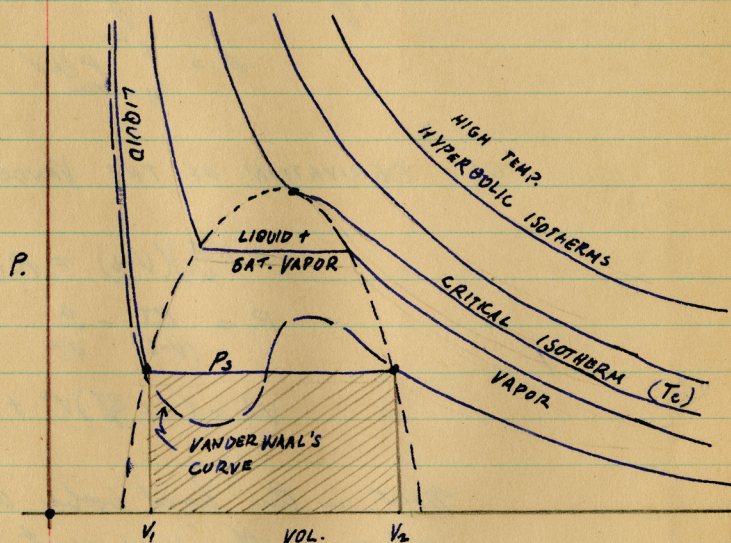 LIQUID
HIGH TEMP.
HYPERBOLIC ISOTHERMS
P.
LIQUID +
SAT. VAPOR
CRITICAL ISOTHERM (Tc)
VAPOR
Ps
VANDER WAAL'S
CURVE
V1
VOL.
V2